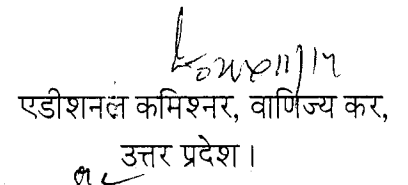 एडीशनल कमिश्नर, वाणिज्य कर,
उत्तर प्रदेश।